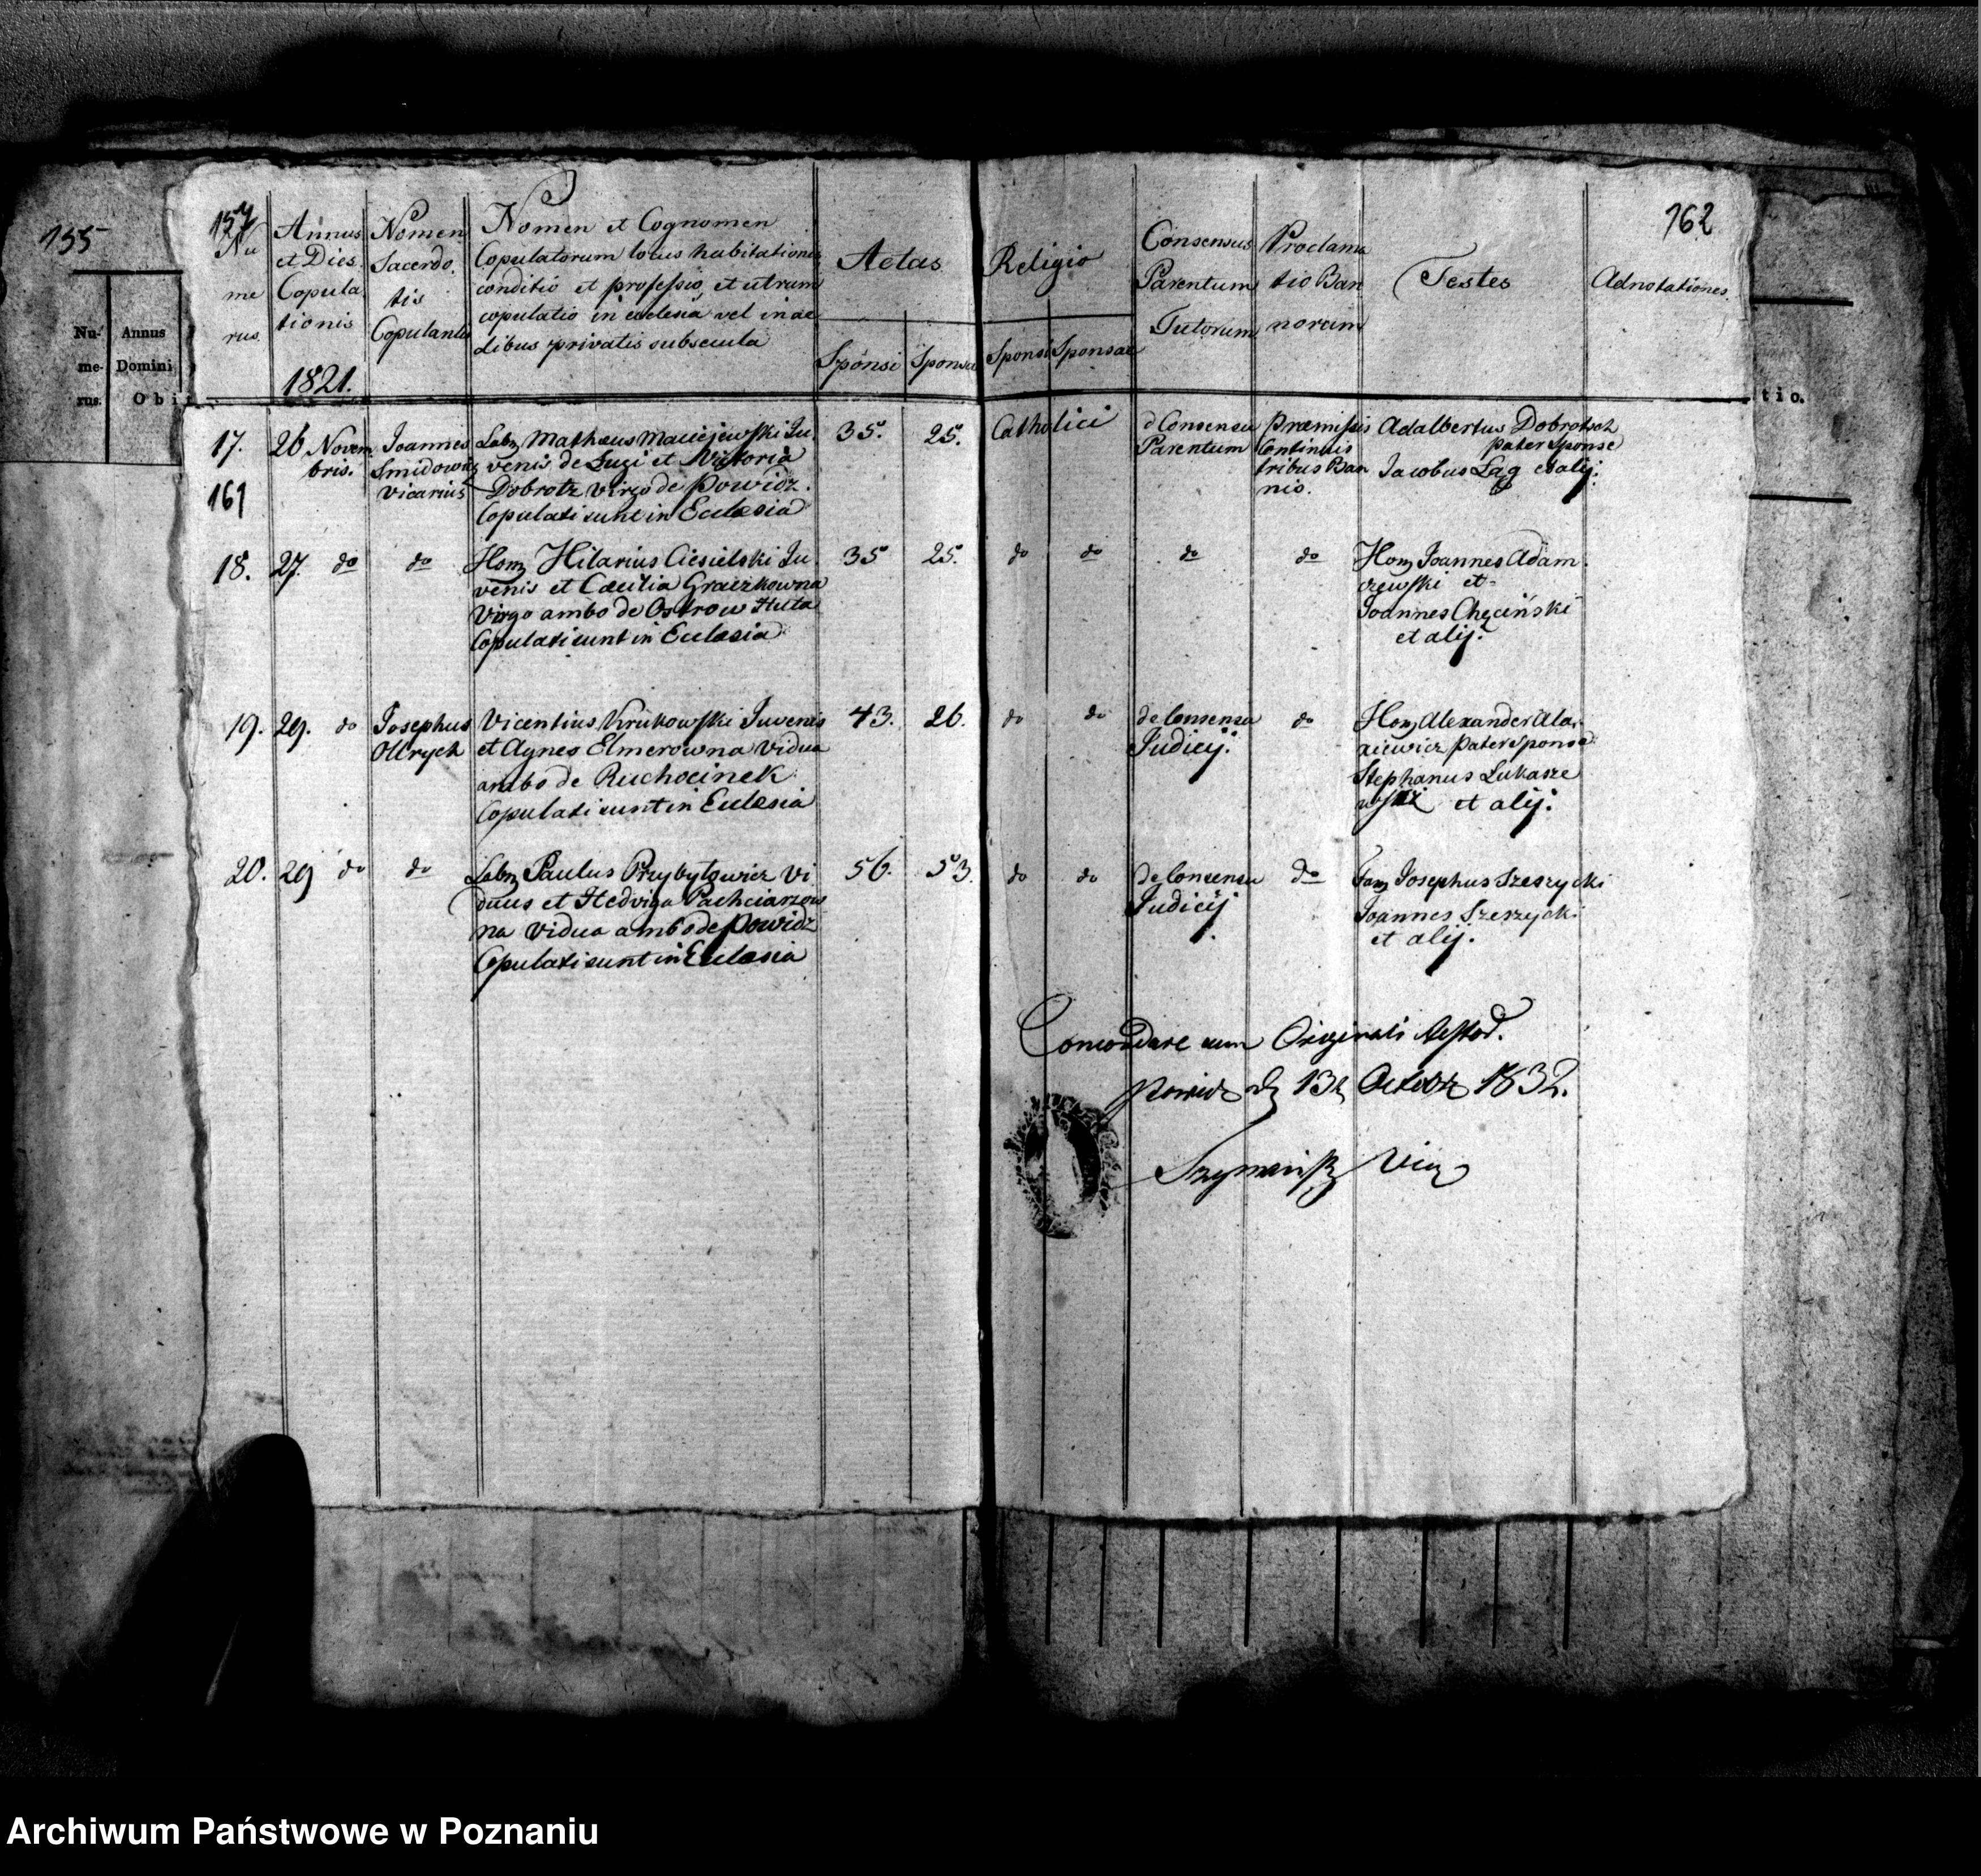 155
Nu-
me-
rus.
Annus
Domini
Obi
157
Nu
me
rus.
Annus
et Dies
Copula
tionis
1821.
Nomen
Sacerdo.
tis
Copulantis
Nomen et Cognomen
Copulatorum locus habitationis
conditio et professio, et utrum
copulatio in ecclesia vel in ae
dibus privatis subsecuta
Aetas
Sponsi
Sponsae
Religio
Sponsi
Sponsae
Consensus
Parentum
Tutorum
Proclama
tio Ban
norum
Testes
Adnotationes.
162
tio.
17.
161
26 Novem
bris.
Joannes
Smidowicz
Vicarius
Lab. Mathaeus Maciejewski Ju.
venis de Ługi et Victoria
Dobrotz Virgo de Powidz.
Copulati sunt in Ecclesia
35.
25.
Catholici
d Consensu
Parentum
Praemissis
Continuis
tribus Ban
nis.
Adalbertus Dobrotsch
Pater Sponse
Jacobus Lag et alij.
18.
27. do
do
Hon. Hilarius Ciesielski Ju.
venis et Caecilia Graczkowna
Virgo ambo de Ostrow Huta
Copulati sunt in Ecclesia
35
25.
do
do
do
do
Hon. Joannes Adam.
czewski et
Joannes Chęciński
et alij.
19.
29. do
Josephus
Olbrych
Vicentius Krukowski Juvenis
et Agnes Elmerowna Vidua
ambo de Ruchocinek
Copulati sunt in Ecclesia
43.
26.
do
do
de Consensu
Judicij.
do
Hon. Alexander
Pater Sponse
Stephanus Lukasze
wski et alij.
20.
29 do
do
Lab. Paulus Przybyłowicz Vi
duus et Hedviga Pachciarzow
na Vidua ambo de Powidz
Copulati sunt in Ecclesia
56.
53.
do
do
de Consensu
Judicij
do
Fam. Josephus Szeszycki
Joannes Szeszycki
et alij.
Concordare cum Originali
Powidz d. 13 October 1832.
Szymański Vic.
Archiwum Państwowe w Poznaniu